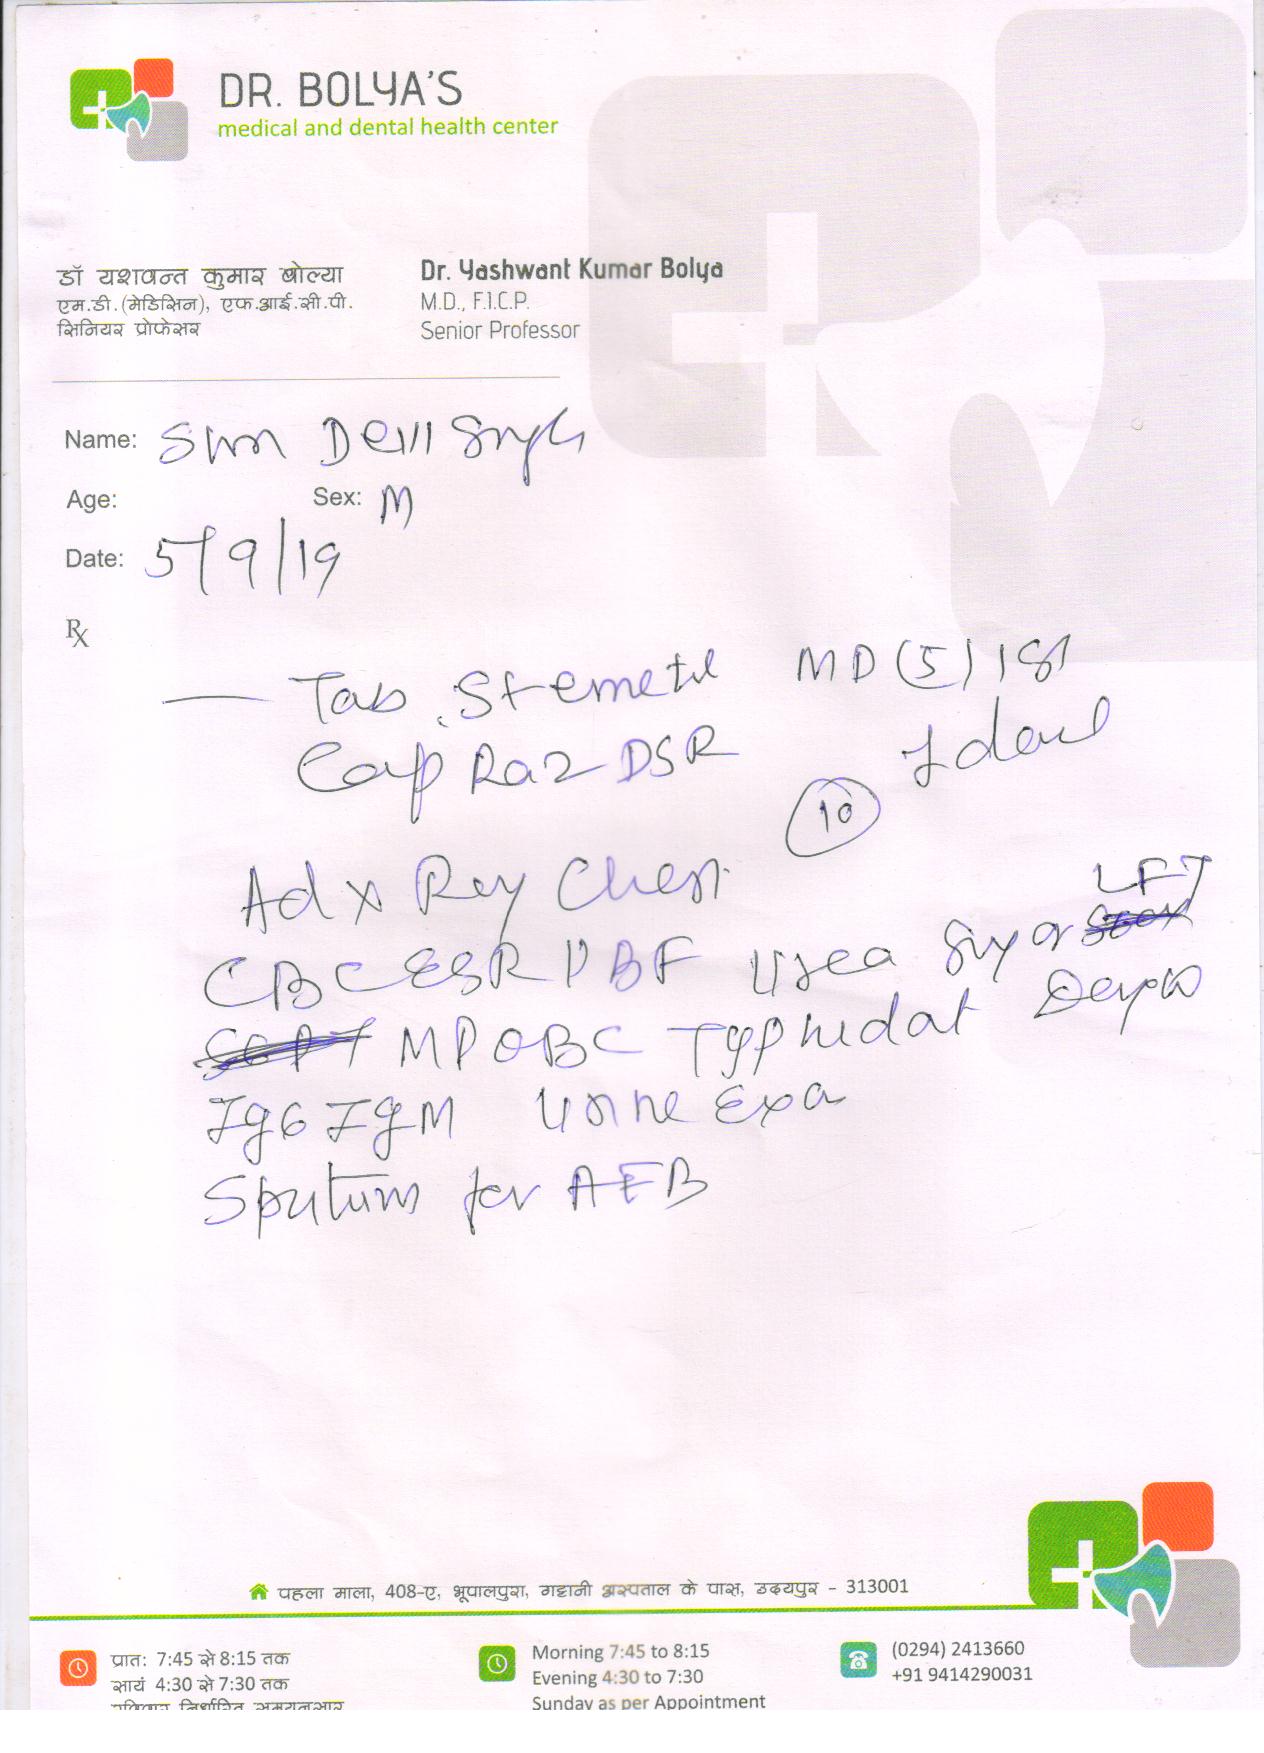 DR. BOLYA'S
medical and dental health center
डॉ यशवन्त कुमार बोल्या
एम.डी.(मेडिसिन), एफ.आई.सी.पी.
सिनियर प्रोफेसर
Dr. Yashwant Kumar Bolya
M.D., F.I.C.P.
Senior Professor
Name:
Age: Sex: M
Date: 5/9/19
Rx
Tab. Stemetil MD (5) 1
Cap Raz DSR
10
Ad X Ray Chest
LFT
CBC ESR PBF Urea Sugar
MP QBC Typhidot
IgG IgM Urine Exa
Sputum for AFB
पहला माला, 408-ए, भूपालपुरा, गट्टानी अस्पताल के पास, उदयपुर - 313001
प्रात: 7:45 से 8:15 तक
सायं 4:30 से 7:30 तक
रविवार निर्धारित समयानुसार
Morning 7:45 to 8:15
Evening 4:30 to 7:30
Sunday as per Appointment
(0294) 2413660
+91 9414290031